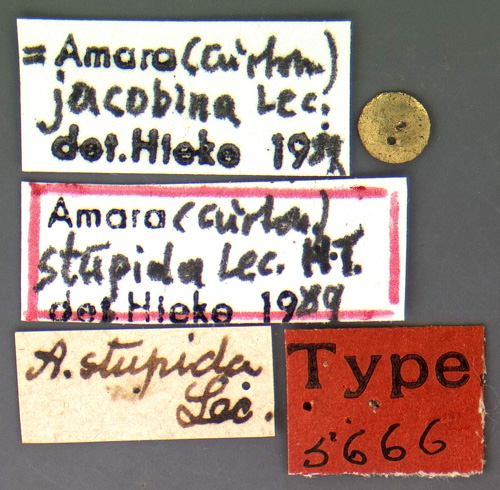 = Amara (Curton)
jacobina Lec.
det. Hieke 1989
Amara (Curton)
stupida Lec. H.T.
det. Hieke 1989
A. stupida
Lec.
Type
5666